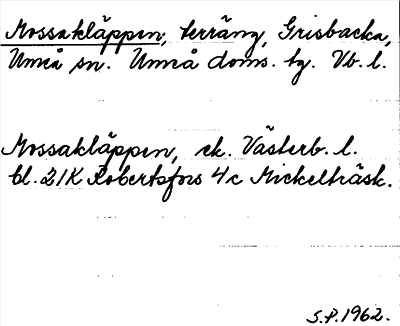 Mossakläppen, terräng, Grisbacka,
Umeå sn. Umeå doms. tg. Vb. l.
Mossakläppen, ek. Västerb. l.
bl. 21K Robertsfors 4c Mickelträsk.
S.P. 1962.